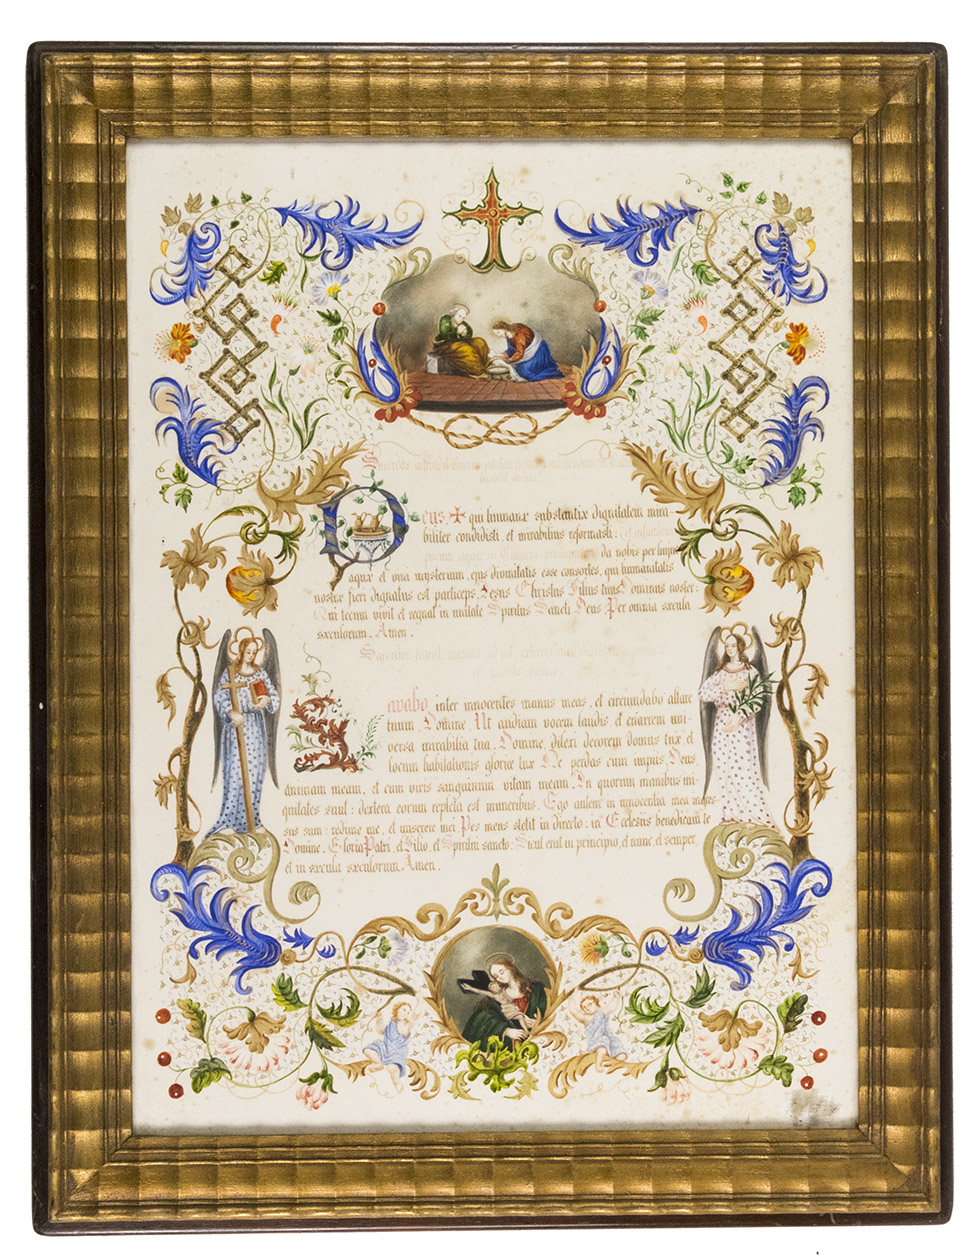 Sacerdos
Deus, ✠ qui humanæ substantiæ dignitatem mira
biliter condidisti, et mirabilius reformasti:
da nobis per hujus
aquæ et vini mysterium, ejus divinitatis esse consortes, qui humanitatis
nostræ fieri dignatus est particeps, Jesus Christus Filius tuus Dominus noster:
Qui tecum vivit et regnat in unitate Spiritus Sancti Deus Per omnia sæcula
sæculorum. Amen.
Sacerdos lavat manus
Lavabo inter innocentes manus meas, et circumdabo altare
tuum Domine, Ut audiam vocem laudis et enarrem uni-
versa mirabilia tua, Domine, dilexi decorem domus tuæ et
locum habitationis gloriæ tuæ Ne perdas cum impiis, Deus,
animam meam, et cum viris sanguinum vitam meam, In quorum manibus ini-
quitates sunt: dextera eorum repleta est muneribus. Ego autem in innocentia mea ingres-
sus sum: redime me, et miserere mei, Pes meus stetit in directo: in Ecclesiis benedicam te
Domine, Gloria Patri, et Filio, et Spiritui sancto: Sicut erat in principio, et nunc, et semper,
et in sæcula sæculorum, Amen.